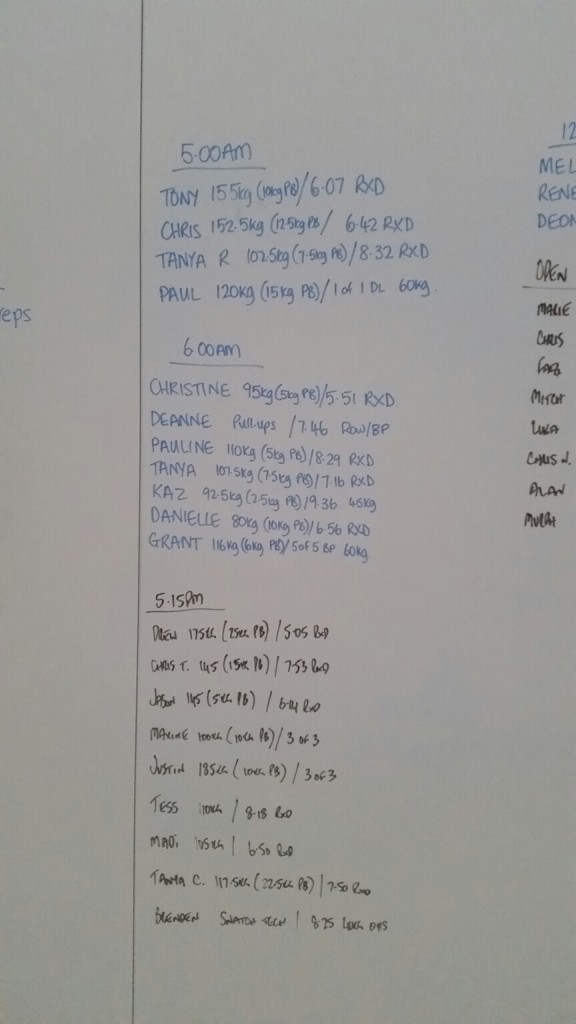 eps
5.00AM
TONY 155kg (10kg PB)/6.07 RXD
CHRIS 152.5kg (12.5kg PB/ 6.42 RXD
TANYA R 102.5kg (7.5kg PB)/8.32 RXD
PAUL 120kg (15kg PB)/1 of 1 DL 60kg.
6.00AM
CHRISTINE 95kg (5kg PB)/5.51 RXD
DEANNE Pull-ups /7.46 Row/BP
PAULINE 110kg (5kg PB)/8.29 RXD
TANYA 107.5kg (7.5kg PB)/7.16 RXD
KAZ 92.5kg (2.5kg PB)/9.36 45kg
DANIELLE 80kg (10kg PB)/6.56 RXD
GRANT 116kg (6kg PB)/5 of 5 BP 60kg
5.15PM
DREW 175KG (25KG PB) / 5.05 RXD
CHRIS T. 145 (15KG PB) / 7.53 RXD
JASON 145 (5KG PB) / 6.14 RXD
MAXINE 100KG (10KG PB) / 3 OF 3
JUSTIN 185KG (10KG PB) / 3 OF 3
TESS 110KG / 8.18 RXD
MADI 105KG / 6.50 RXD
TANYA C. 117.5KG (22.5KG PB) / 7.50 RXD
BRENDEN SNATCH TECH / 8.25
12
MEL
RENE
DEON
OPEN
MARIE
CHRIS
GAB
MITCH
LUKA
CHRIS N.
ALAN
MURPH